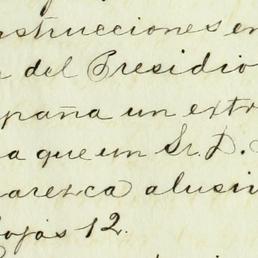 nstrucciones en
del Presidio
spaña un extr
a que un Sr. D.
arezca alusi
ojas 12.